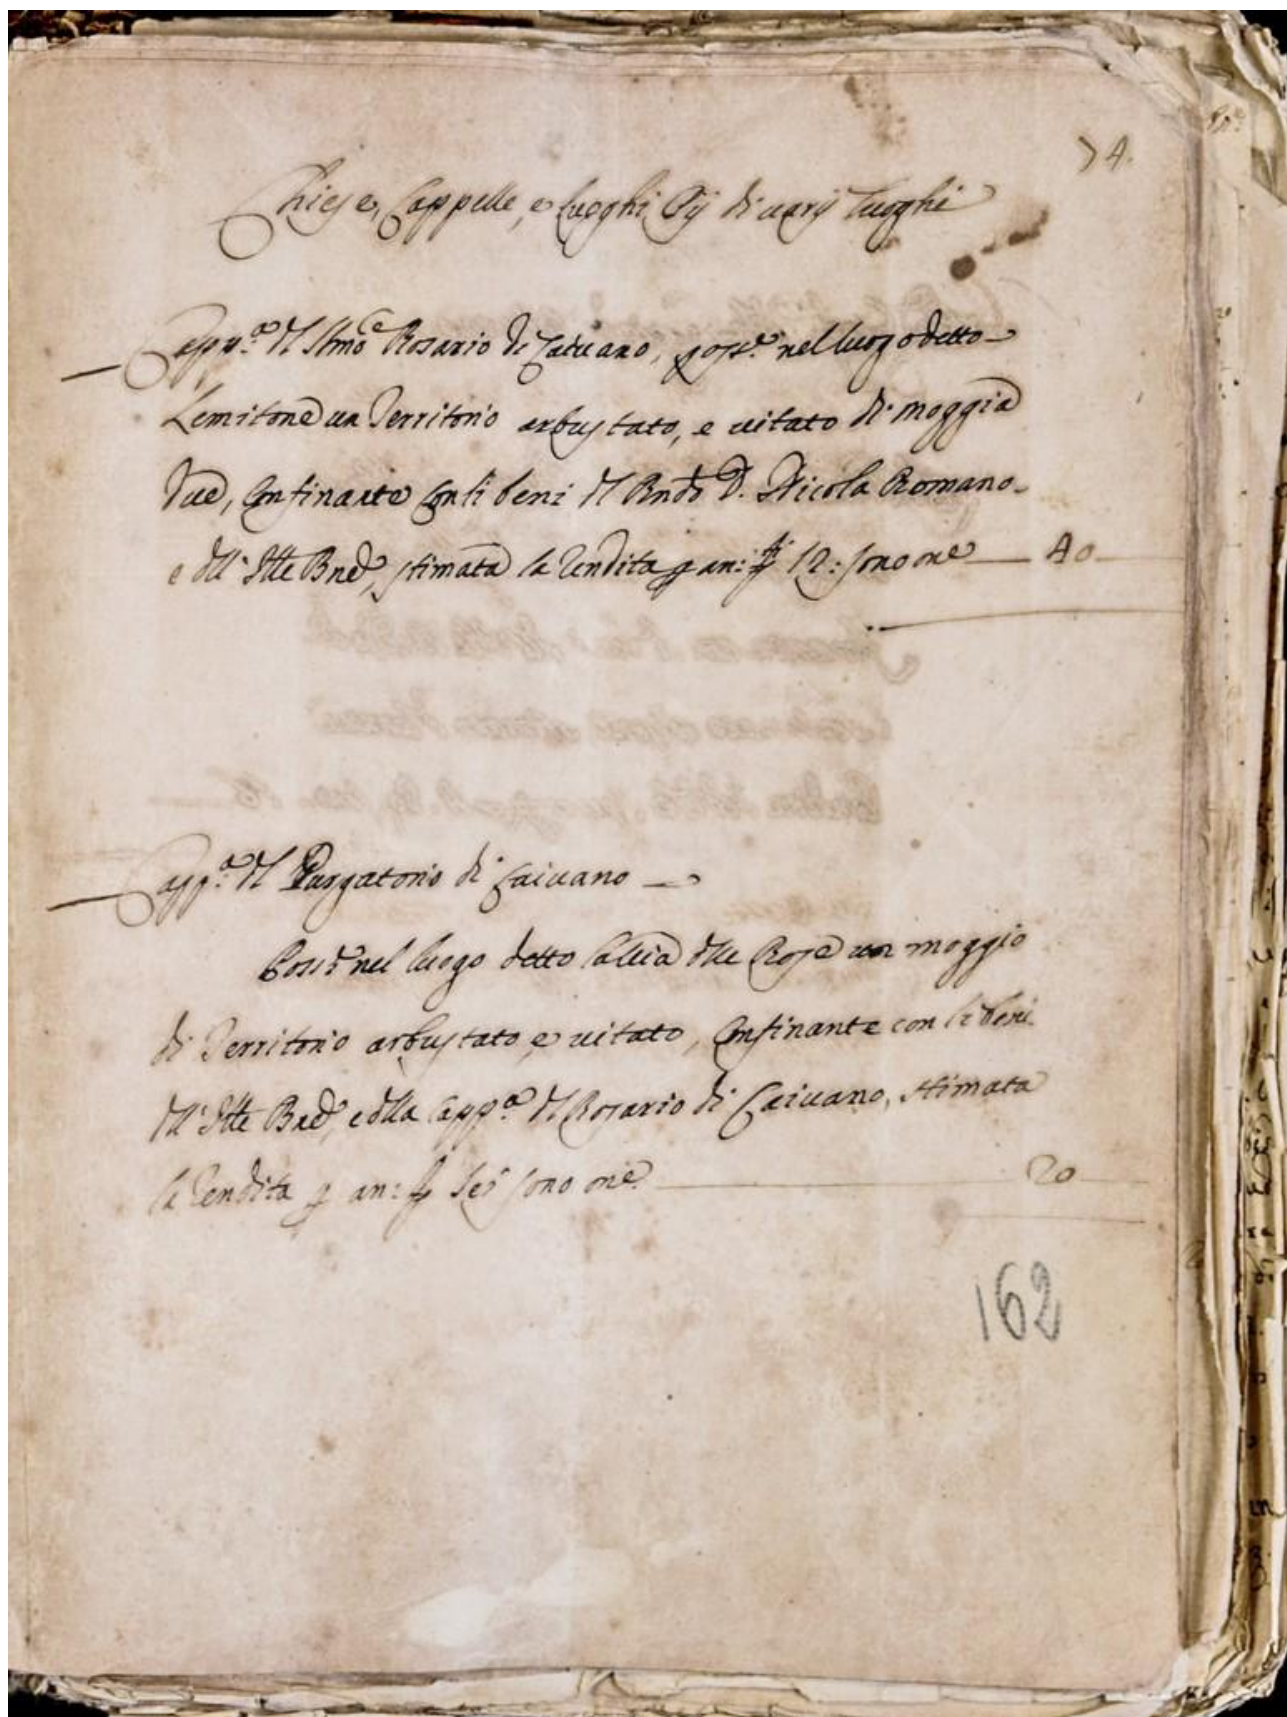 74.
Chiese, Cappelle, e luoghi Pij di varij luoghi
Capp.ª del SSmo Rosario di Caivano, poss.e nel luogo detto
Lemitone un Territorio arbustato, e vitato di moggia
due, Confinante con li beni del Rndo D. Nicola Romano
e dll' Bned, stimata la rendita p an: 12: sono one 40
Capp.ª del Purgatorio di Caivano
Poss.e nel luogo detto la via dlle Rose un moggio
di Territorio arbustato, e vitato, Confinante con li beni
dll' Bned, e dlla Capp.ª del Rosario di Caivano, stimata
la rendita p an: sei sono one 20
162